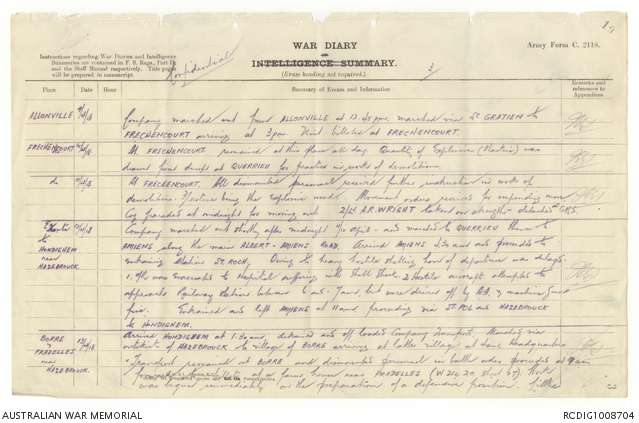 WAR DIARY
or
INTELLIGENCE SUMMARY.
(Erase heading not required.)
Army Form C. 2118.
Instructions regarding War Diaries and Intelligence
Summaries are contained in F. S. Regs., Part II.
and the Staff Manual respectively. Title pages
will be prepared in manuscript.
Confidential
3
Place Date Hour Summary of Events and Information Remarks and references to Appendices
ALLONVILLE Company marched out from ALLONVILLE at 12.45 pm marched via St GRATIEN to
FRECHENCOURT arriving at 3 pm billeted at FRECHENCOURT.
FRECHENCOURT At FRECHENCOURT remained at this place all day. Quantity of Explosives was
drawn from dump at QUERRIEU for practice in work of demolitions.
do At FRECHENCOURT. All dismounted personnel received further instruction in work of
demolitions being the explosive used. Movement orders received for impending move
Coy paraded at midnight for moving out 2/Lt A.R. WRIGHT taken on strength
to HONDIGHEM near HAZEBROUCK Company marched out shortly after midnight and marched to QUERRIEU thence to
AMIENS along the main ALBERT-AMIENS ROAD. Arrived AMIENS and proceeded to
entraining Station St. ROCH. Owing to heavy hostile shelling hour of departure was delayed.
1. was evacuated to Hospital suffering with Shell Shock. 2 Hostile aircraft attempted to
approach Railway Station between 6 and 7 am, but were driven off by A.A. & machine Gun
fire. Entrained and left AMIENS at 11 am proceeding via St POL and HAZEBROUCK
to HONDIGHEM.
BORRE & PRADELLES near HAZEBROUCK. Arrived HONDIGHEM at 1.30 am, detrained and off loaded Company Transport. Marched via
outskirts of HAZEBROUCK to village of BORRE arriving at latter village at 4 am Headquarters
Transport remained at BORRE and dismounted personnel in battle order proceeded at 9 am
at a farm house near PRADELLES Work
was begun immediately on the preparation of a defensive position.
AUSTRALIAN WAR MEMORIAL
RCDIG1008704